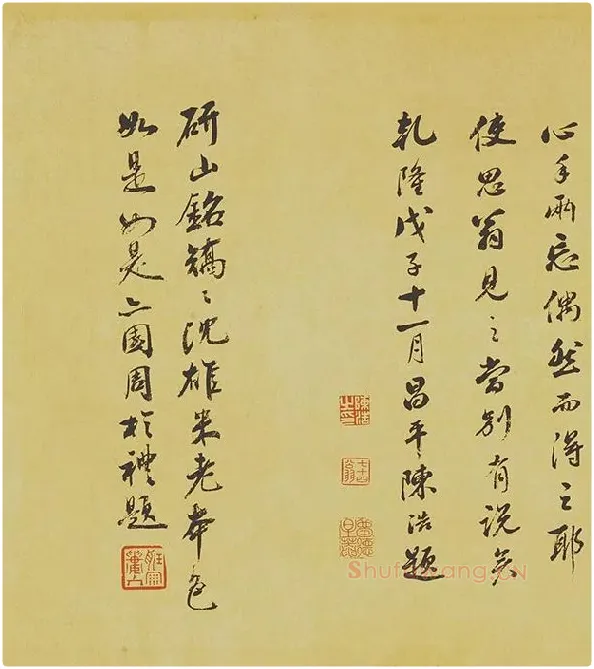 心手兩忘偶然而得之耶
使思翁見之當別有說矣
乾隆戊子十一月昌平陳浩題
陳浩之印
研山銘鎬〻沈雄米老本色
如是如是亦園周於禮題